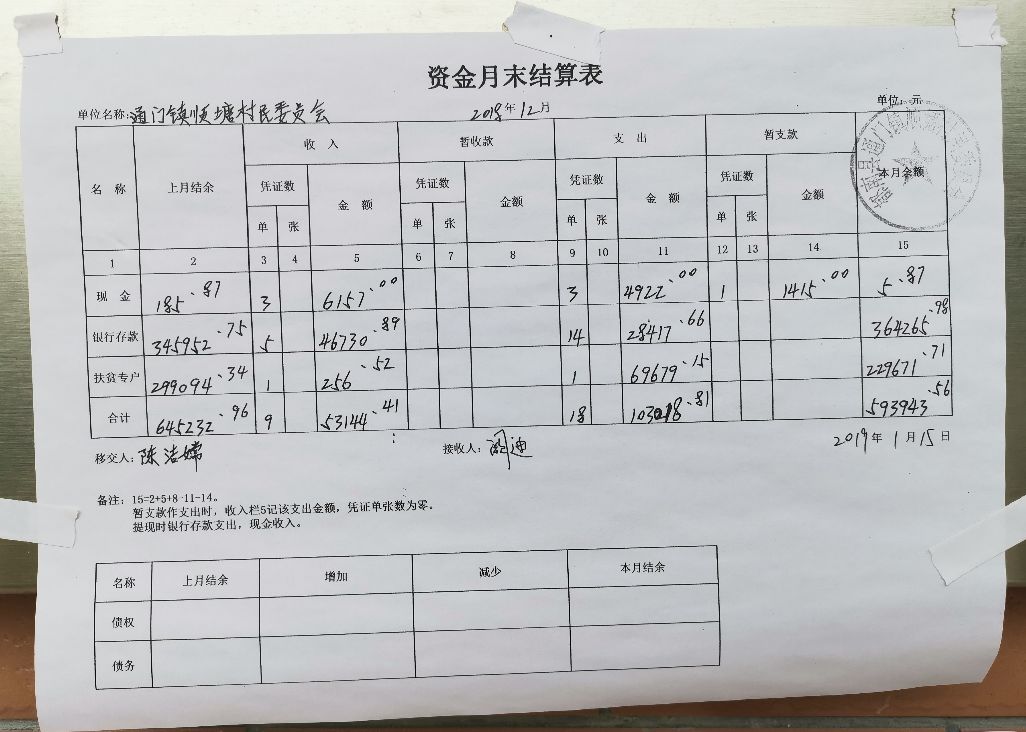 资金月末结算表
单位名称:通门镇顺塘村民委员会 2018年12月 单位:元
名 称 上月结余 收 入 暂收款 支 出 暂支款 本月余额
凭证数 金 额 凭证数 金额 凭证数 金 额 凭证数 金额
单 张 单 张 单 张 单 张
1 2 3 4 5 6 7 8 9 10 11 12 13 14 15
现 金 185.87 3 6157.00 3 4922.00 1 1415.00 5.87
银行存款 345952.75 5 46730.89 14 28417.66 364265.98
扶贫专户 299094.34 1 256.52 1 69679.15 229671.71
合计 645232.96 9 53144.41 18 103018.81 593943.56
移交人:陈洁嫦 接收人: 2019年1月15日
备注:15=2+5+8-11-14。
暂支款作支出时,收入栏5记该支出金额,凭证单张数为零。
提现时银行存款支出,现金收入。
名称 上月结余 增加 减少 本月结余
债权
债务